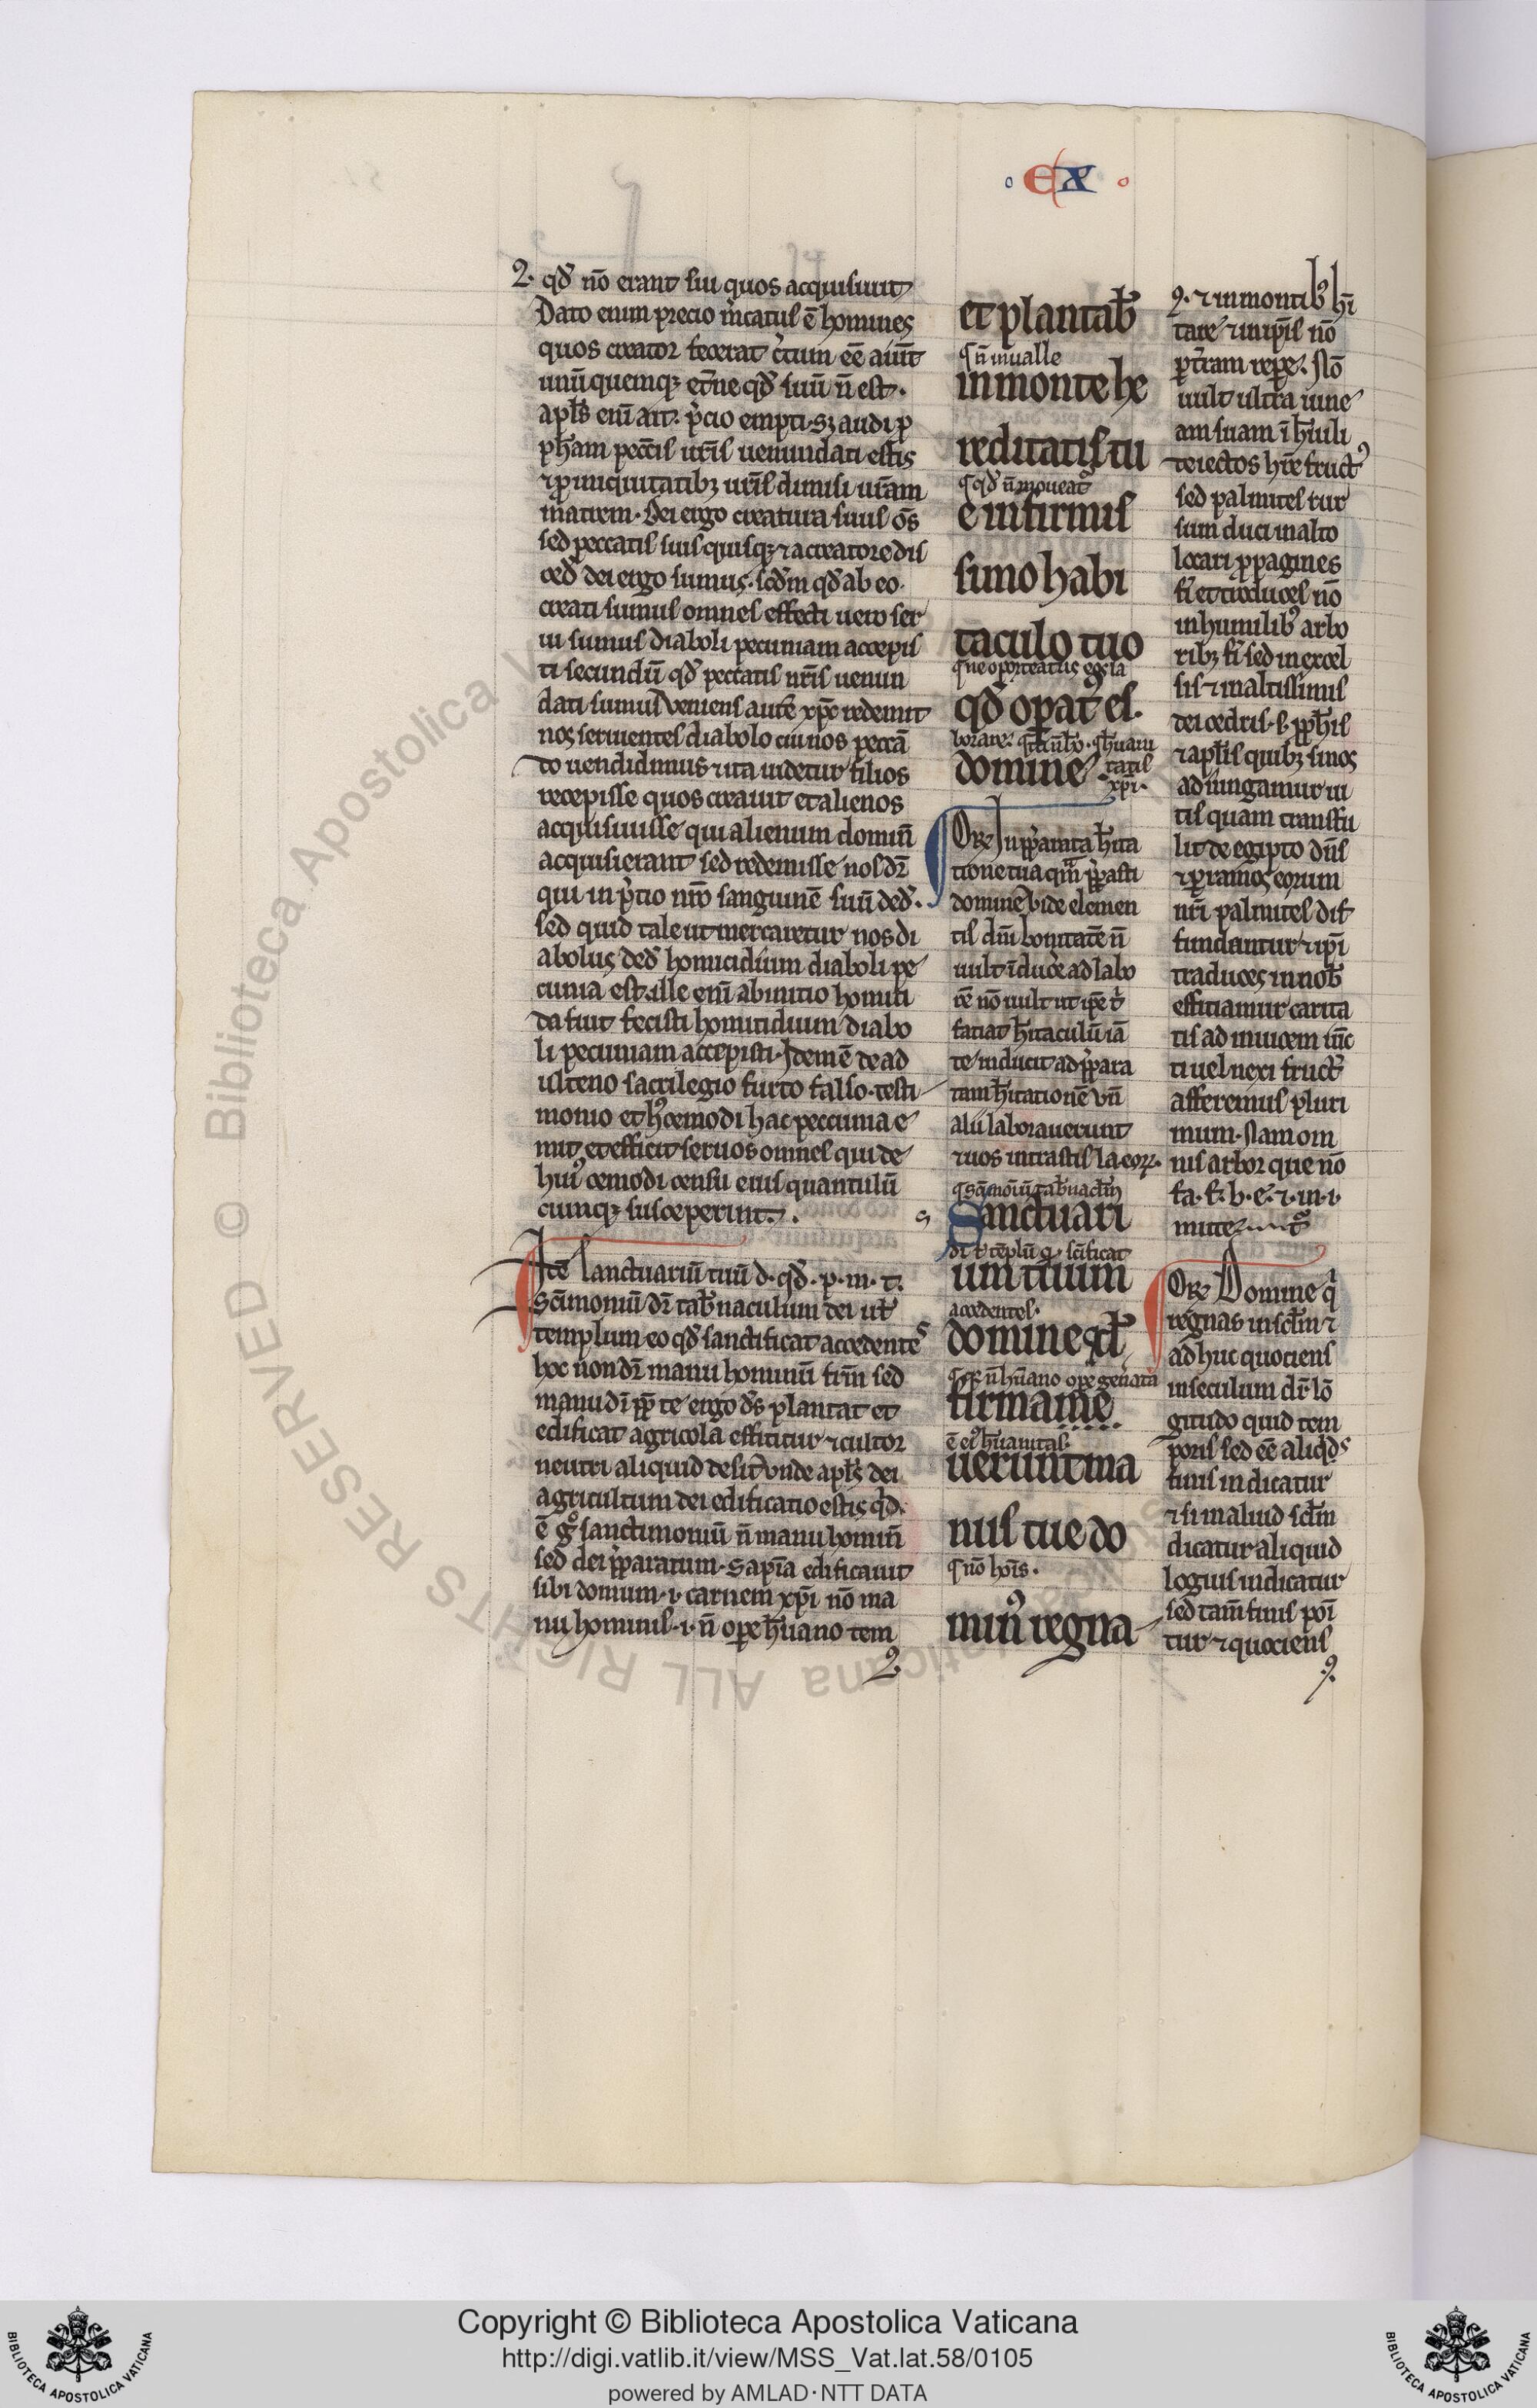 EX
2. qđ nō erant sui quos acquisiuit
Dato enim precio mcatus ē homines
quos creator fecerat
unūquemqꝫ qđ suū n̄ est.
apls enī ait. pcio empti. sꝫ audi p
pham peccīs ur̄is uenundati estis
iniquitatibꝫ ur̄is dimisi ur̄am
matrem. Dei ergo creatura sum᷒ ōs
sed peccatis suis quisqꝫ ⁊ a creatore dis
ced dei ergo sumus. scđm qđ ab eo
creati sumus omnes effecti uero ser
ui sumus diaboli pecuniam accepis
ti secundū qđ peccatis nr̄is uenun
dati sumus Veniens autē xp̄c redemit
nos seruientes diabolo cui nos peccā
to uendidimus ⁊ ita uidetur filios
recepisse quos creauit et alienos
acquisiuisse qui alienum dominū
acquisierant sed redemisse nos dr̄
qui in pcio nr̄o sanguinē suū ded.
sed quid tale ut mercaretur nos di
abolus ded homicidium diaboli pe
cunia est. ille enī ab initio homici
da fuit fecisti homicidium diabo
li pecuniam accepisti. Idem ē de ad
ulterio sacrilegio furto falso testi
monio et hꝰcemodi hac peccunia e
mit et efficit seruos omnes qui de
huiꝰcemodi censu eius quantulū
cumqꝫ susceperint.
Itē Sanctuariū tuū d. qđ. p. m. t.
Sc̄imoniū dr̄ tabnaculum dei ut
templum eo qđ sanctificat accedentes
hoc non dr̄ manu hominū firm̄ sed
manu dī pp te ergo ds plantat et
edificat agricola efficitur ⁊ cultor
neutri aliquid desit Vnde apls dei
agricultum dei edificatio estis qd.
ē g° sanctimoniū n̄ manu hominū
sed dei pparatum. Sapīa edificauit
sibi domum .i. carnem xp̄i nō ma
nu hominis .i. n̄ ope huano tem
2.
et plantab
n̄ in ualle
in monte he
reditatis tu
qđ n̄ moueat
e in firmis
simo habi
taculo tuo
que oporteat eccla
qđ opatꝰ es.
domine
xp̄i.
Ore In pparata hita
tione tua qm̄ ppasti
domine Vide elemen
tis dn̄i bonitatē n̄
uult īduce ad labo
rē nō uult ut ipe t
faciat hitaculū iā
te inducit ad ppara
tam hitationē Vn̄
alii laborauerunt
⁊ uos intrastis la. eorꝝ.
Sanctuari
dī t tēplū q scificat
um tuum
accedentes.
domine qđ
n̄ huano ope genatā
firmaue
ē eiꝰ huanitas.
uerunt ma
nus tue do
nō hoīs.
minꝰ regna
9. ⁊ in montibꝰ hi
tare ⁊ in ip̄is nō
p trram repe. Nō
uult ultra uine
am suam ī huli
deiectos hre fructꝰ
sed palmites sur
sum duci in alto
locari ppagines
fi et traduces nō
in humilibꝰ arbo
ribꝫ fi sed in excel
sis ⁊ in altissimis
dei cedris. s. pphis
⁊ aplis quibꝫ si nos
adiungamur ui
tis quam transtu
lit de egipto dn̄s
⁊ p ramos eorum
nr̄i palmites dif
fundantur ⁊ ip̄i
traduces in nob
efficiamur carita
tis ad inuicem iūc
ti uel nexi fructꝰ
afferemus pluri
mum. Nam om
nis arbor que nō
fa. f. b. e. ⁊ in. i.
mittet
Ore Domine q
regnas in sclm ⁊
adhuc quociens
in seculum dr̄ lō
gitudo quid tem
poris sed eē aliqđ
finis indicatur
⁊ si in aliud sclm
dicatur aliquid
logius indicatur
sed tam̄ finis poī
tur ⁊ quociens
9.
Copyright © Biblioteca Apostolica Vaticana
http://digi.vatlib.it/view/MSS_Vat.lat.58/0105
powered by AMLAD·NTT DATA
BIBLIOTECA APOSTOLICA VATICANA
BIBLIOTECA APOSTOLICA VATICANA
© Biblioteca Apostolica Vaticana ALL RIGHTS RESERVED